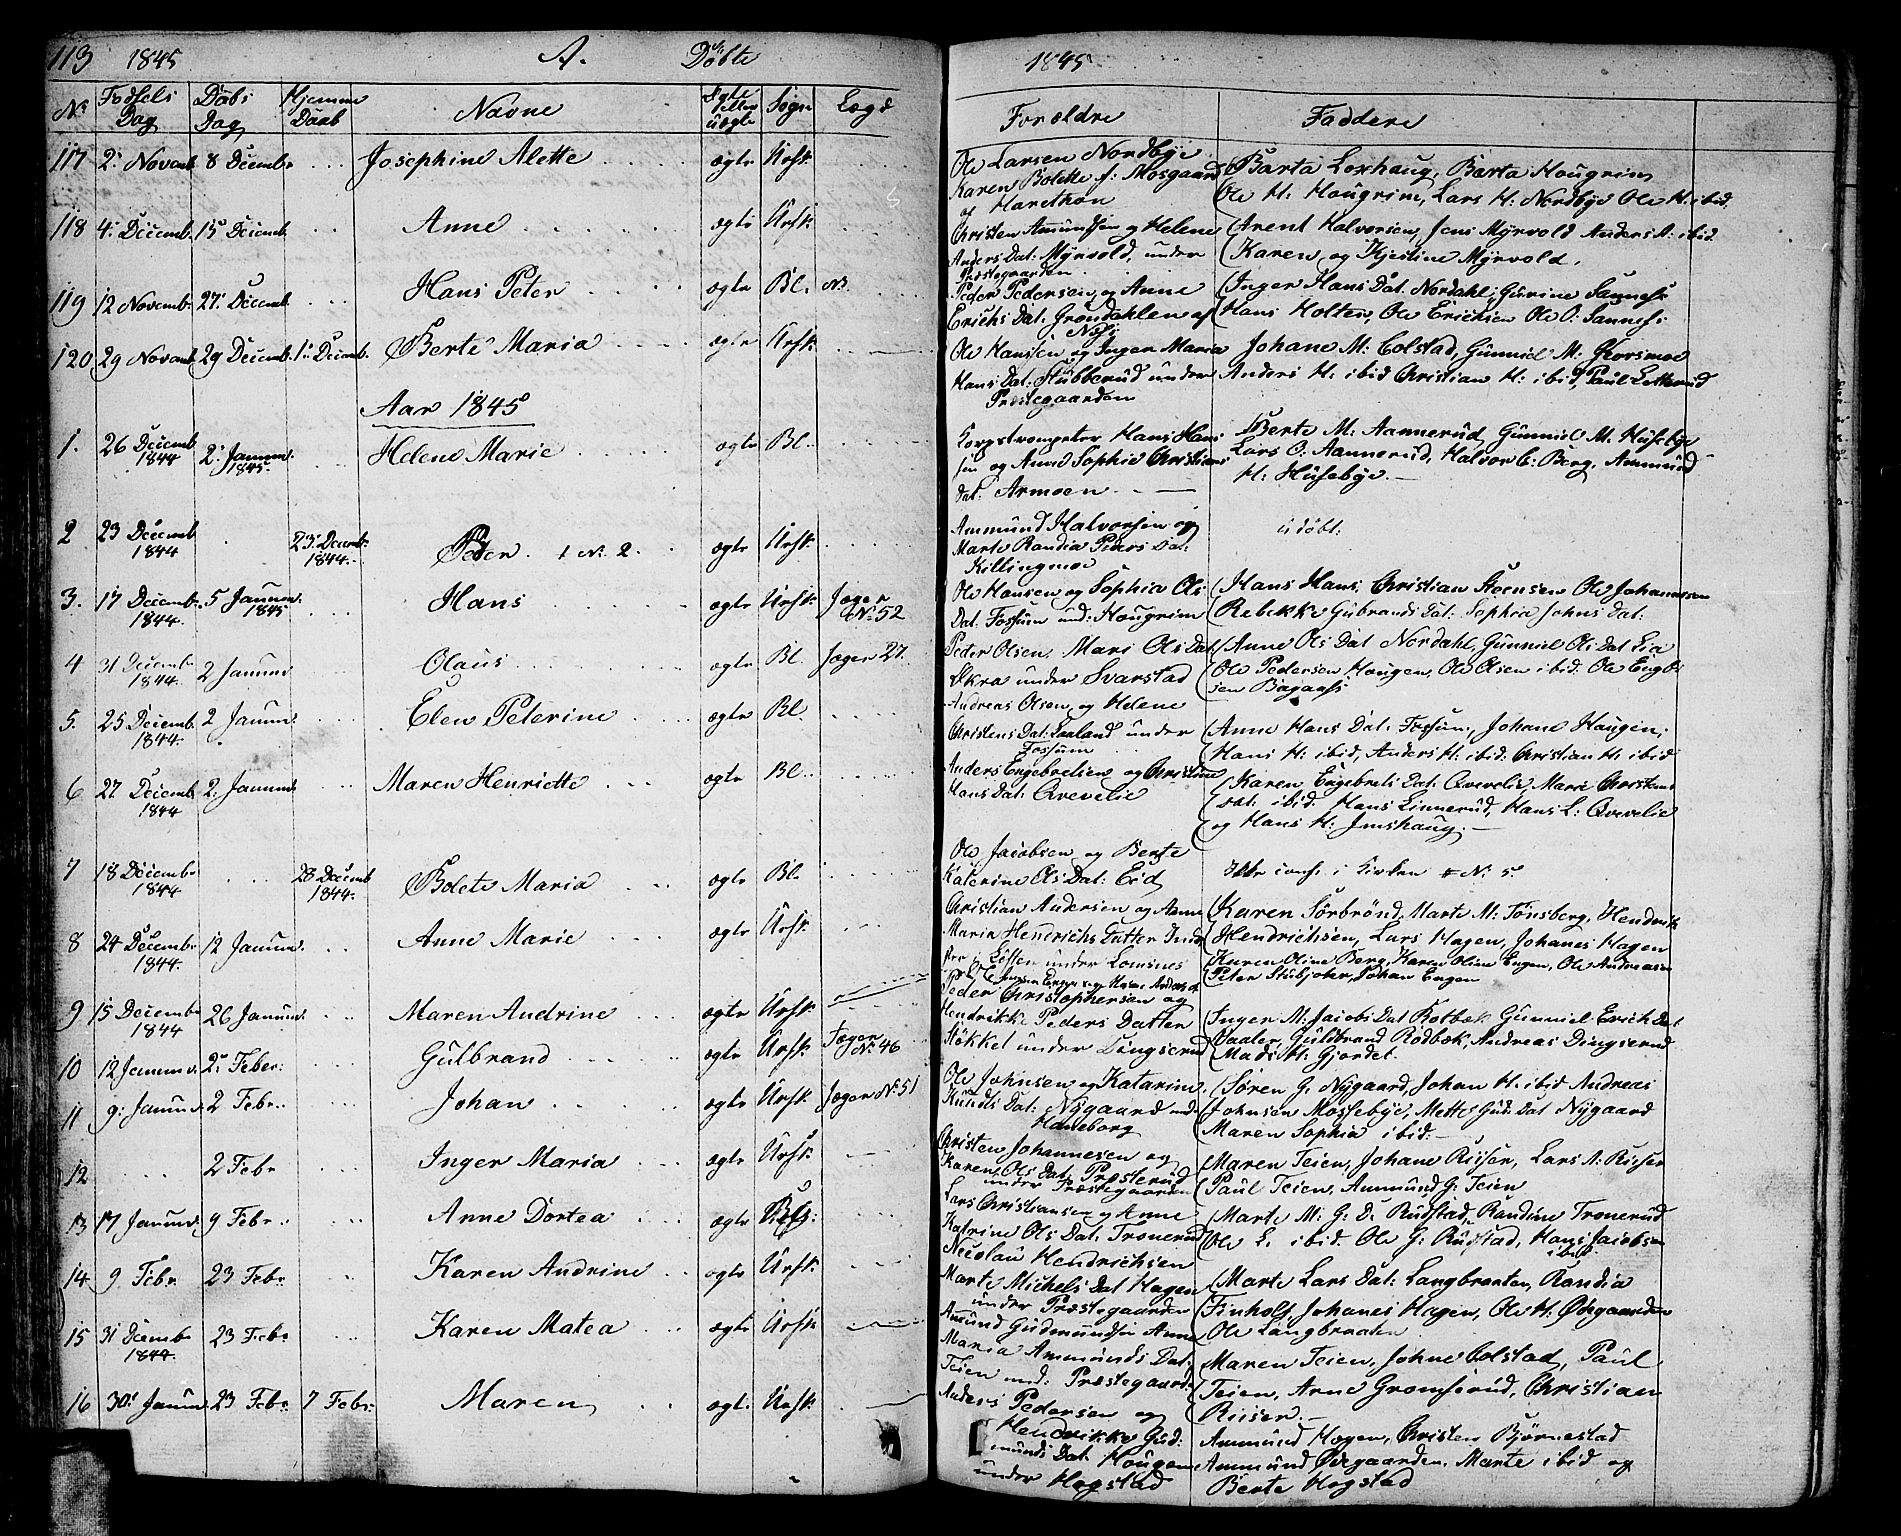 113 1845 A. Døbte 1845
No Fødsels Dag Daabs Dag Hjemme Daab Navne Ægte eller uægte Sogn Lægd Forældre Faddere
117 2. Novemb. 8 Decembr ... Josephine Alette ægte Ursk.
Ole Larsen Nordbye
Karen Bolette
af Harethon
Barta Loxhaug, Barta Hougrim
Ole H. Hougrim, Lars H. Nordbye Ole H. ibid.
118 4. Decemb. 15 Decemb. Anne ægte Ursk.
Christen Amundsen og Helene
Anders Dat. Myrvold, under
Præstegaarden
Arent Halvorsen, Jens Myrvold Anders A. ibid.
Karen og Kjestine Myrvold.
119 12 Novembr. 27. Decemb Hans Peter ægte Bl.
Peder Pedersen og Anne
Erichs Dat. Grøndahlen af
Næs
Inger Hans Dat. Nordahl, Gurine
Hans Holter, Ole Erichsen Ole O.
120 29 Novemb. 29 Decemb. 1. Decemb. Berte Maria ægte Ursk.
Ole Hanssen og Inger Maria
Hans Dat. Stubberud under
Præstegaarden
Johane M. Colstad, Gunniel M. Korsmoe
Anders H. ibid Christian H. ibid, Paul
Aar 1845
1. 26 Decemb 1844 2. Januar. 1845 Helene Marie ægte Bl.
Korpstrompeter Hans Han-
sen og Anne Sophie Christians
Dat. Armoen
Berte M. Aannerud, Gunniel M. Husebye
Lars O. Aannerud, Halvor C. Berg, Ammund
H. Husebye.
2 23 Decemb 1844 23. Decemb. 1844. Peder. † No. 2. ægte Ursk.
Ammund Halvorsen og
Marte Randia Peders Dat.
Killingmoe
udøbt.
3. 17 Decemb. 1844. 5 Januar. 1845 Hans ægte Ursk. Jæger No. 52
Ole Hansen og Sophia Ols
Dat. Fossum und. Hougrim
Hans Hans, Christian Steensen Ole Johannessen
Rebekke Gubrands Dat. Sophia Johns Dat.
4 31 Decembr 1844. 2 Januar Olaus ægte Bl. Jæger 27.
Peder Olsen, Mari Ols Dat.
Økra under Svarstad
Anne Ols Dat Nordahl, Gunniel Ols Dat Lia
Ole Pedersen Hougen, Ole Olsen ibid. Ole Engb-
sen Bagaas
5. 25 Decemb. 1844. 2. Januar. Elen Peterine ægte Bl.
Andreas Olsen og Helene
Christens Dat. Haaland under
Fossum
Anne Hans Dat. Fossum, Johane Haugen,
Hans H. ibid, Anders H. ibid. Christian H. ibid
6 27 Decemb 1844 2. Januar Maren Henriette ægte Bl.
Anders Engebretsen og Christine
Hans Dat. Qvevelie
Karen Engebrets Dat. Qvevelie, Mari Christens
Dat. ibid. Hans Linnerud, Hans L. Qvevelie
og Hans H. Imshaug.
7 18 Decembr 1844 28 Decemb 1844. Bolete Maria ægte Bl.
Ole Jacobsen og Berte
Katerine Ols Dat. Eid
Ikke conf. i Kirken † No. 5.
8 24 Decembr 1844. 12 Januar. Anne Marie ægte Ursk.
Christian Andersen og Anne
Maria Henrichs Datter
under Lomsnes
Karen Sørbrønd, Marte M. Tønsberg, Hendrik
Hendrichsen, Lars Hagen, Johanes Hagen
Karen Oline Berg, Karen Oline Engen, Ole Andreasen
Peter Stubjohr, Johan Engen
9 15 Decembr 1844 26 Januar. Maren Andrine ægte Ursk.
10 12 Januar. 2. Febr. Gulbrand ægte Ursk. Jæger No. 46
Peder Christophersen og
Hendrikke Peders Datter
Støkket under Dingserud
Inger M. Jacobs Dat Rotbæk Gunniel Erichs Dat
Vaaler, Guldbrand Rødbæk, Andreas Dingserud
Mads H. Gjordet.
11 9. Januar. 2 Febr. Johan ægte Ursk. Jæger No. 51
Ole Johnsen og Katarine
Knuds Dat. Nygaard und.
Haneborg
Søren G. Nygaard, Johan H. ibid Andreas
Johnsen Mossebye, Mette Gud. Dat Nygaard
Maren Sophia ibid.
12 ... 2 Febr Inger Maria ægte Ursk.
Christen Johannesen og
Karen Ols Dat. Præsterud
under Præstegaarden
Maren Teien, Johane Riiser, Lars A. Riiser
Paul Teien, Ammund G. Teien
13 17 Januar. 9 Febr. Anne Dortea ægte Ursk.
Lars Christiansen og Anne
Katrine Ols Dat. Tronerud
Marte M. G. D. Rudstad, Randine Tronerud
Ole L. ibid. Ole G. Rustad, Hans Jacobsen
ibid.
14 9 Febr. 23 Febr. Karen Andrine ægte Ursk.
Nicolau Hendrichsen
Marte Michels Dat Hagen
under Præstegaarden
Marte Lars Dat. Langbraaten, Randia
Finholt, Johanes Hagen, Ole H. Ødegaarden
Ole Langbraaten
15 31 Decembr 1844. 23 Febr Karen Matea ægte Ursk.
Amund Gudmundsen Anne
Maria Ammunds Dat.
Teien und. Præstegaard.
Maren Teien, Johne Colstad, Paul
Teien, Arne Gromserud, Christian
Riiser.
16 30. Januar. 23 Febr. 7 Febr. Maren ægt. Ursk.
Anders Pedersen og
Hendrikke Gud-
munds Dat. Hougen
under Hogstad
Ammund Hagen, Christen Bjørnestad
Ammund Ødegaarden. Marte ibid og
Berte Hogstad